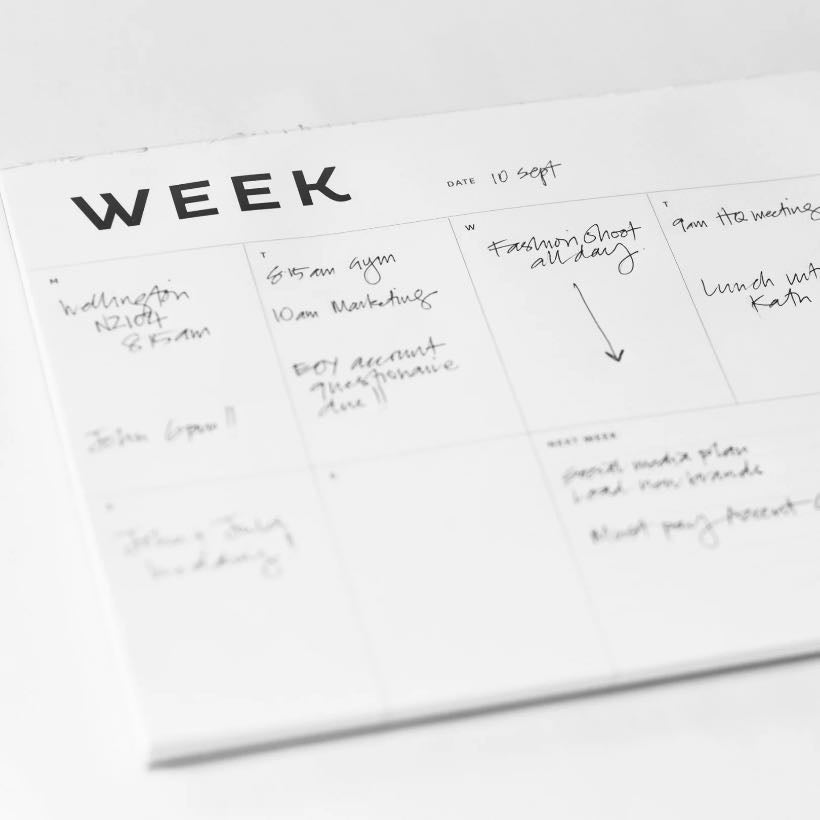 WEEK
DATE 10 Sept
M
Wellington
NZ104
8.15am
John 6pm!!
T
8.15am Gym
10am Marketing
EOY account
questionaire
due!!
W
Fashion Shoot
all day.
T
9am HQ meeting
Lunch
Kath
S
John & July
wedding
S
NEXT WEEK
Social media plan
Load new brands
Must pay Accent